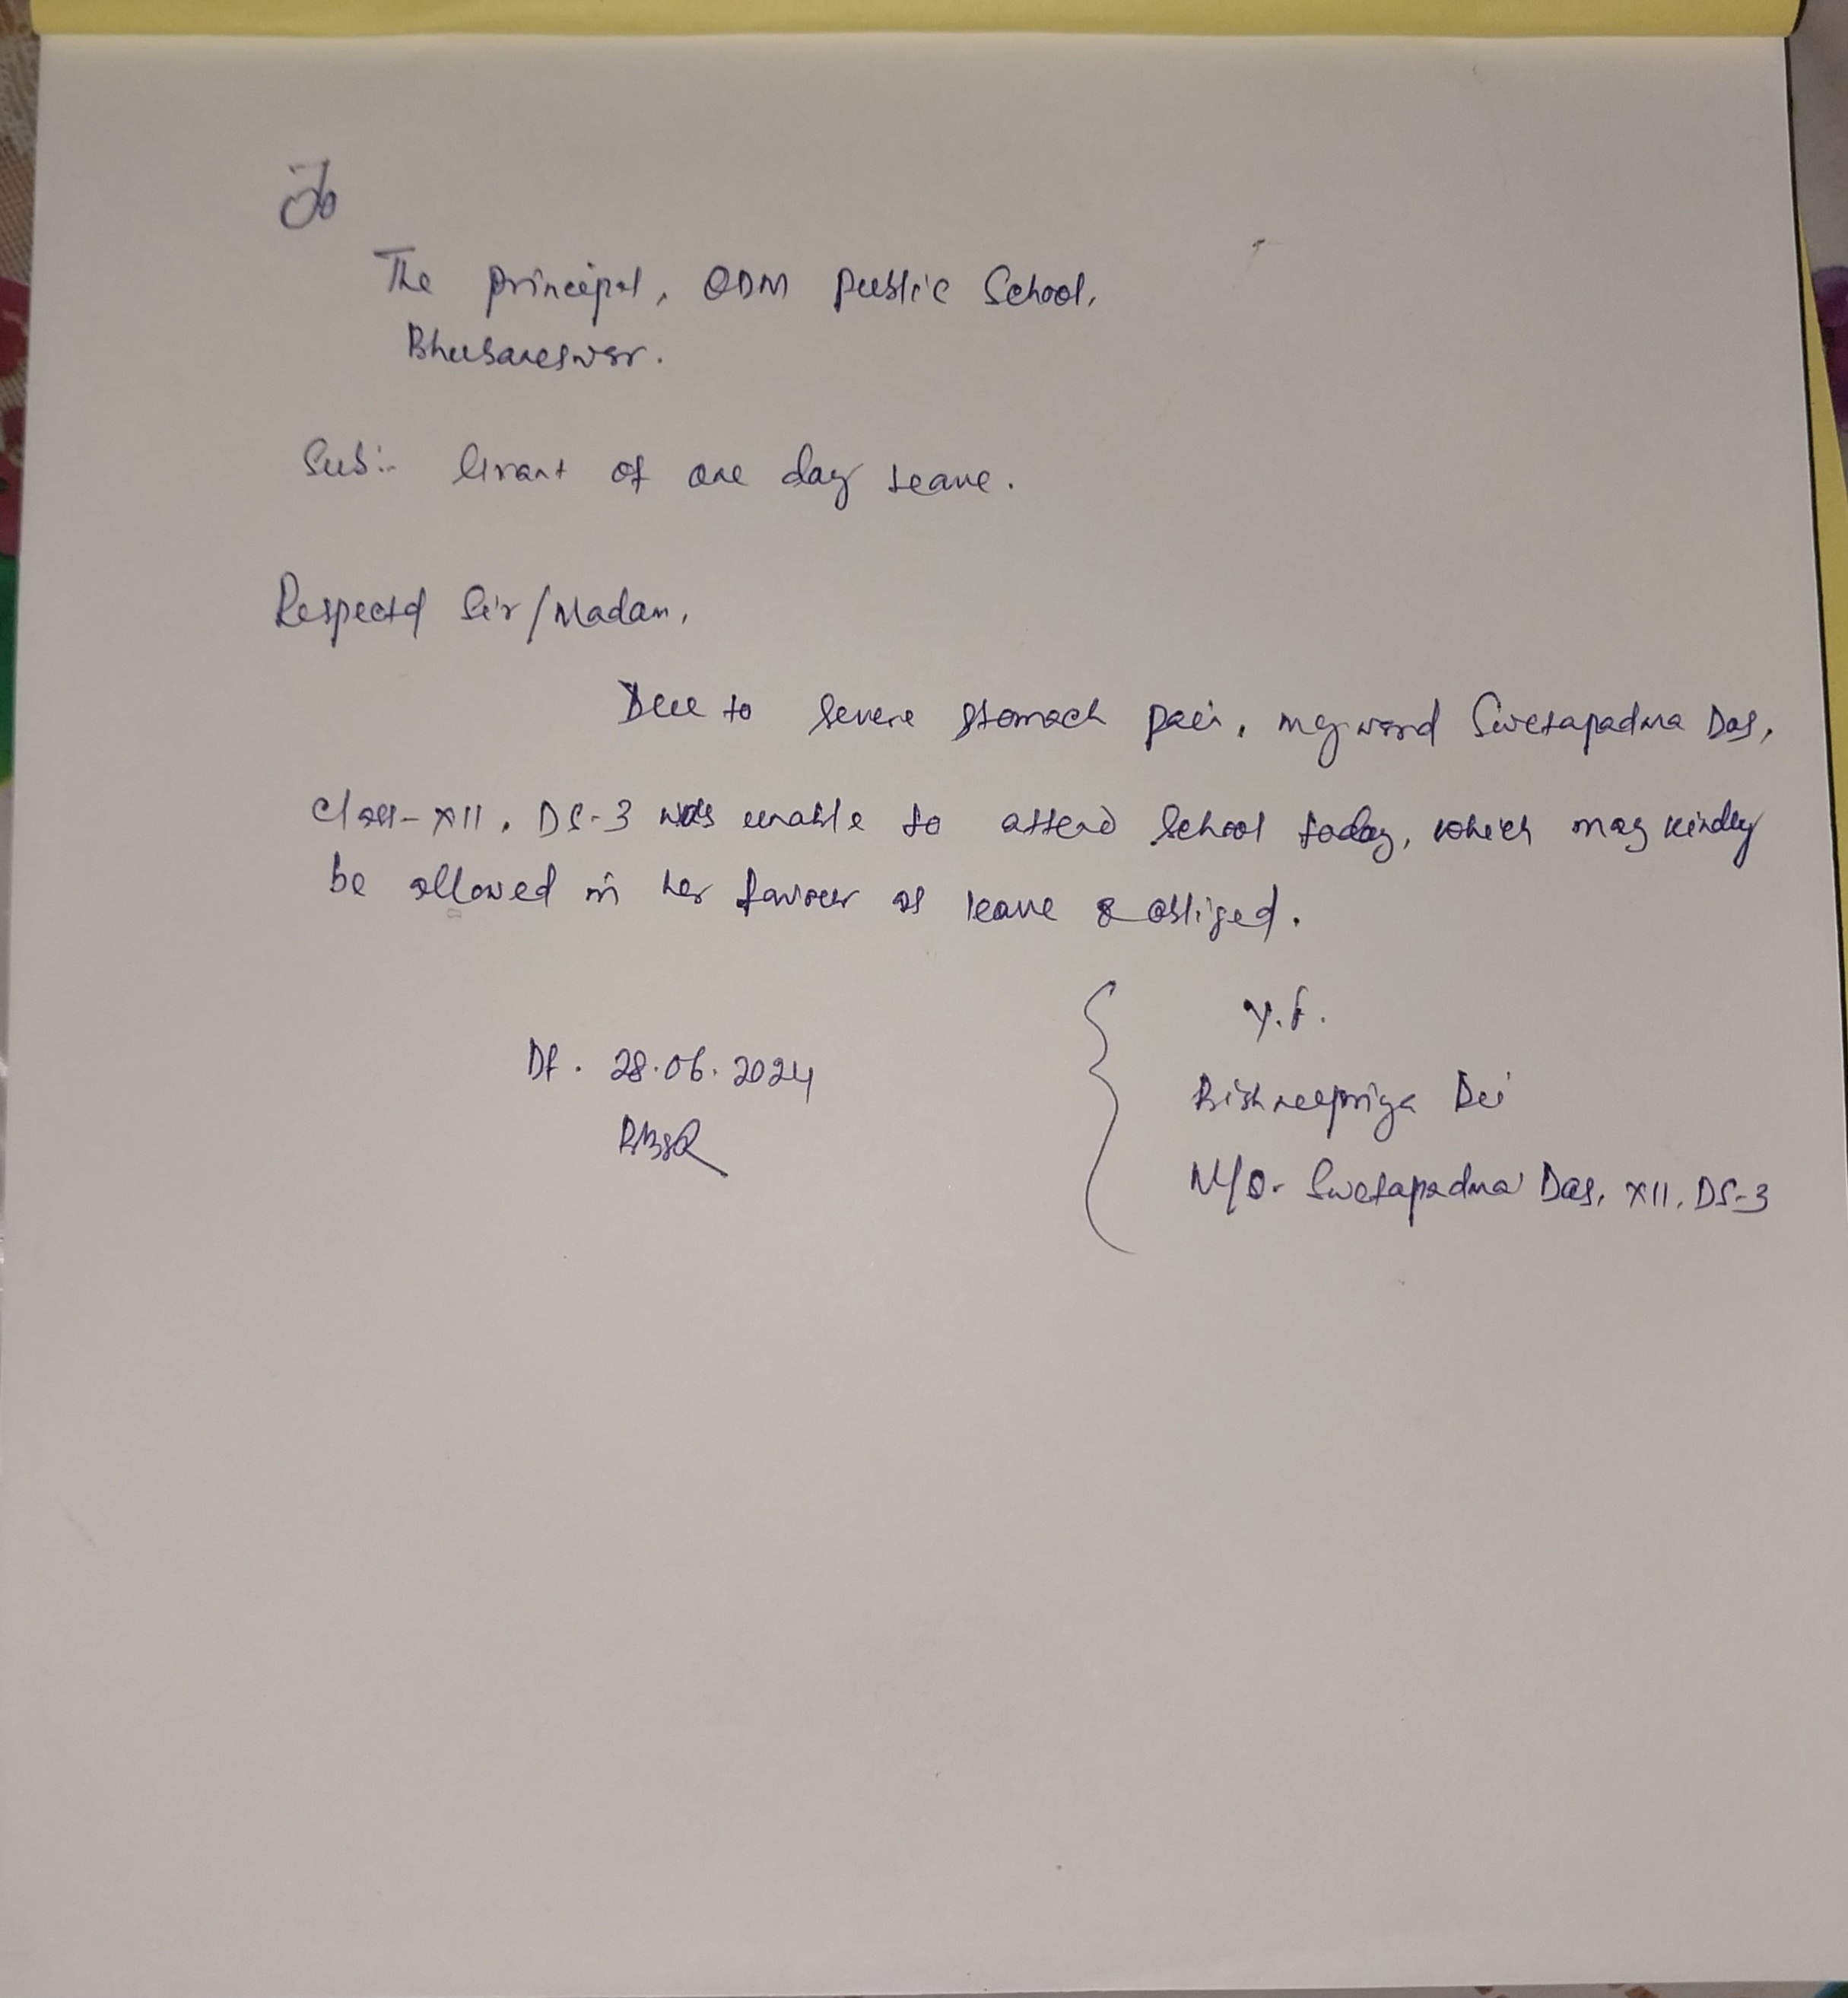 To
The Principal, ODM Public School,
Bhubaneswar.
Sub:- Grant of one day leave.
Respected Sir/Madam,
Due to severe stomach pain, my ward Swetapadma Das,
Class-XII, DS-3 was unable to attend School today, which may kindly
be allowed in her favour as leave & obliged.
Y.f.
Dt. 28.06.2024
Bishnupriya Dei
BBSR
M/o. Swetapadma Das, XII, DS-3